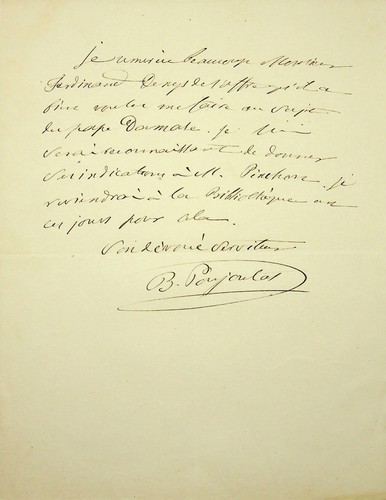 je remercie beaucoup Monsieur
Ferdinand Denys de l'offre qu'il a
bien voulu me faire au sujet
du pape Damase. je lui
serai reconnaissant de donner
ses indications à M. je
reviendrai à la Bibliothèque un
ces jours pour cela.
Son dévoué serviteur
B. Poujoulat